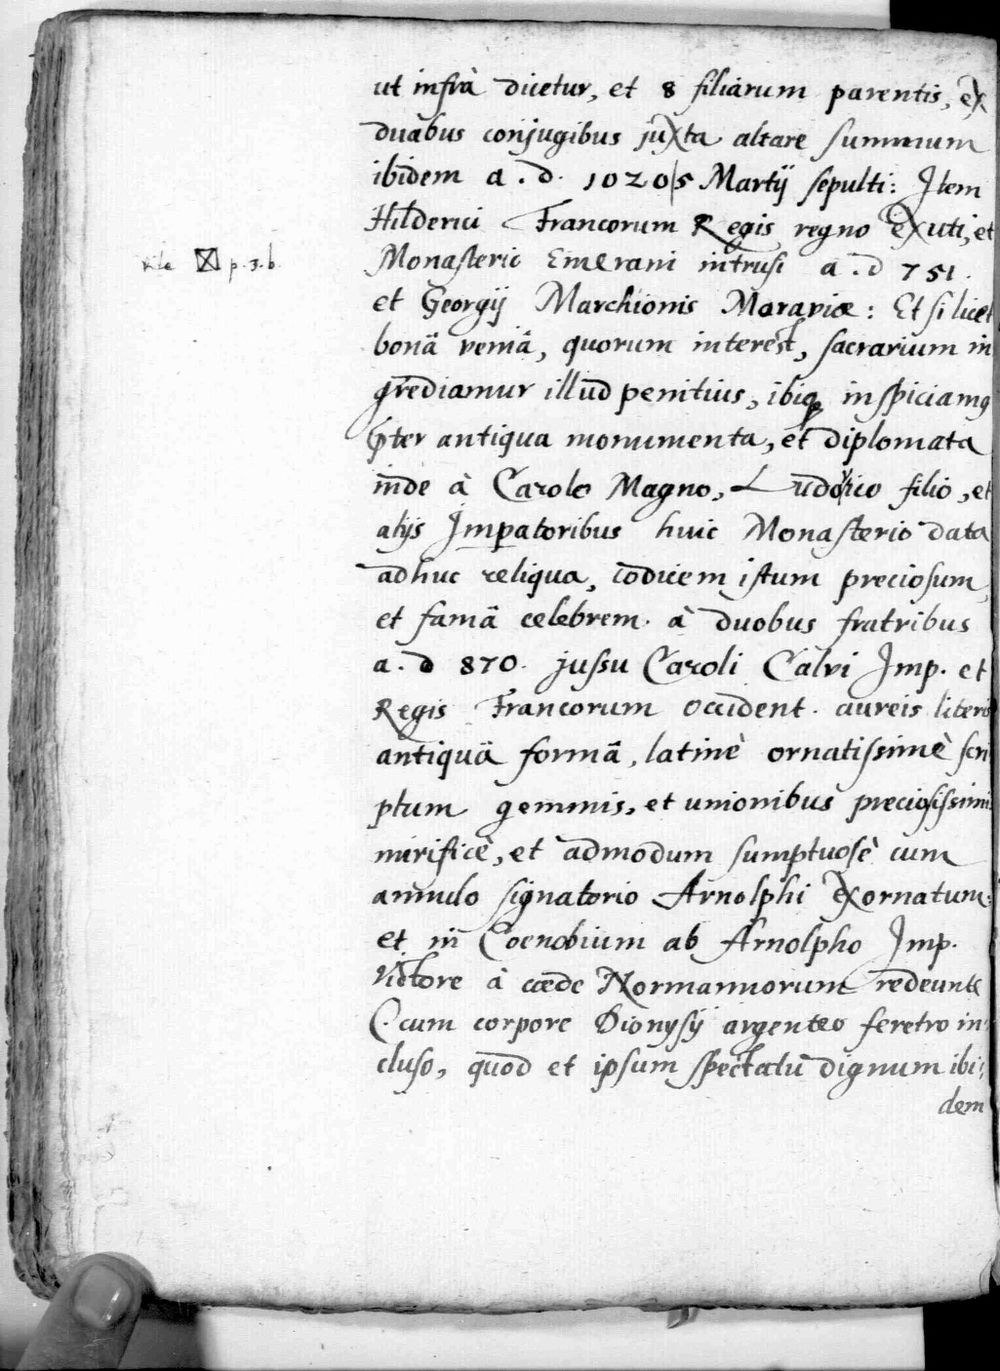 ut infrà dicetur, et 8 filiarum parentis, ex
duabus conjugibus juxta altare summum
ibidem a. d. 1020 | 5 Martij sepulti: Item
Hilderici Francorum Regis regno exuti, et
Monasterio Emerani intrusi a. d 751.
p. 3. b.
et Georgij Marchionis Moraviæ: Et si licet
bonâ veniâ, quorum interest, sacrarium in
grediamur illud penitius, ibiq inspiciamg
pter antiqua monumenta, et diplomata
inde à Carolo Magno, Ludovico filio, et
alijs Impatoribus huic Monasterio data
adhuc reliqua, codicem istum preciosum,
et famâ celebrem à duobus fratribus
a. d 870. jussu Caroli Calvi Imp. et
Regis Francorum occident. aureis literis
antiquâ formâ, latinè ornatissimè scri
ptum gemmis, et unionibus preciosissimis
mirificè, et admodum sumptuosè cum
annulo signatorio Arnolphi exornatum:
et in Coenobium ab Arnolpho Imp.
victore à cæde Normannorum redeunte
(cum corpore Dionysij argenteo feretro in:
cluso, quod et ipsum spectatu dignum ibi:
dem